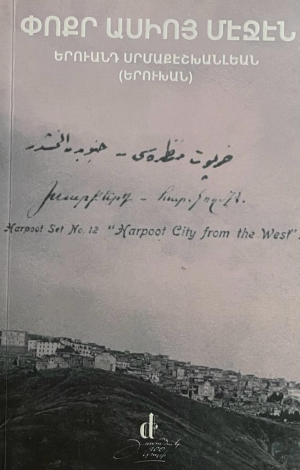 ՓՈՔՐ ԱՍԻՈՅ ՄԷՋԷՆ
ԵՐՈՒԱՆԴ ՍՐՄԱՔԷՇԽԱՆԼԵԱՆ
(ԵՐՈՒԽԱՆ)
خرپوت منظره‌سی –
խարբերդ –
Harpoot Set No. 12 "Harpoot City from the West".